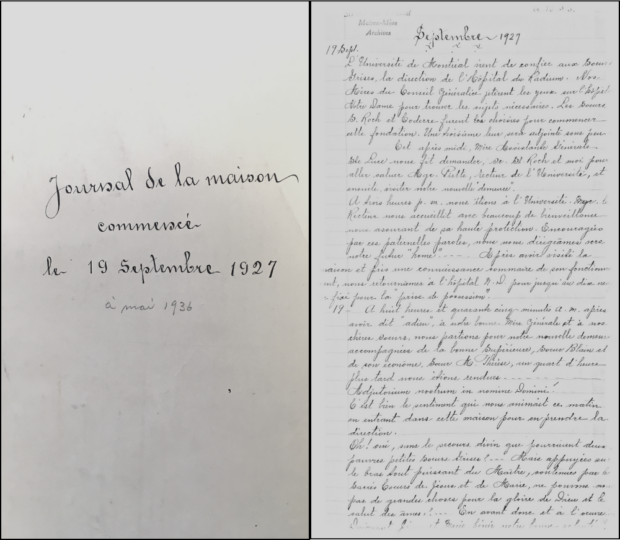 Journal de la maison
commencé
le 19 Septembre 1927
à mai 1936
Maison-Mère
Archives
Septembre 1927
17 Sept.
L'Université de Montréal vient de confier aux Sœurs
Grises, la direction de l'Hôpital du Radium. Nos
Mères du Conseil Général jetèrent les yeux sur l'Hôpital
Notre Dame pour trouver les sujets nécessaires. Les Sœurs
St. Roch et Coderre furent choisies pour commencer
cette fondation. Une troisième leur sera adjointe sous peu.
Cet après midi, Mère Assistante Générale,
nous fait demander, Sr. St. Roch et moi pour
aller saluer Mgr. Piette, Recteur de l'Université, et
ensuite visiter notre nouvelle "demeure".
A trois heures p. m. nous étions à l'Université. Mgr. le
Recteur nous accueillit avec beaucoup de bienveillance
nous assurant de sa haute protection. Encouragées
par ces paternelles paroles, nous nous dirigeâmes vers
notre futur "home" ---- Après avoir visité la
maison et pris une connaissance sommaire de son fonctionne-
ment, nous retournâmes à l'hôpital N. D. pour jusqu'au dix neu-
f pour la "prise de possession".
19 - A huit heures et quarante cinq minutes a. m. après
avoir dit "adieu", à notre bonne Mère Générale et à nos
chères sœurs, nous partions pour notre nouvelle demeure
accompagnées de la bonne Supérieure, Sœur Blain et
de son économe, Sœur M. Thérèse, un quart d'heure
plus tard nous étions rendues ----
Adjutorium nostrum in nomine Domini!
C'est bien le sentiment qui nous animait ce matin
en entrant dans cette maison pour en prendre la
direction.
Oh! oui, sans le secours divin que pourraient deux
pauvres petites Sœurs Grises! --- Mais appuyées sur
le bras tout puissant du Maître, soutenues par les
Sacrés Cœurs de Jésus et de Marie, ne pouvons nous
pas de grandes choses pour la gloire de Dieu et le
salut des âmes! --- En avant donc et à l'œuvre